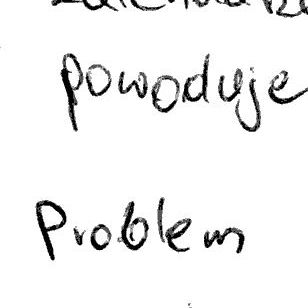 powoduje
Problem